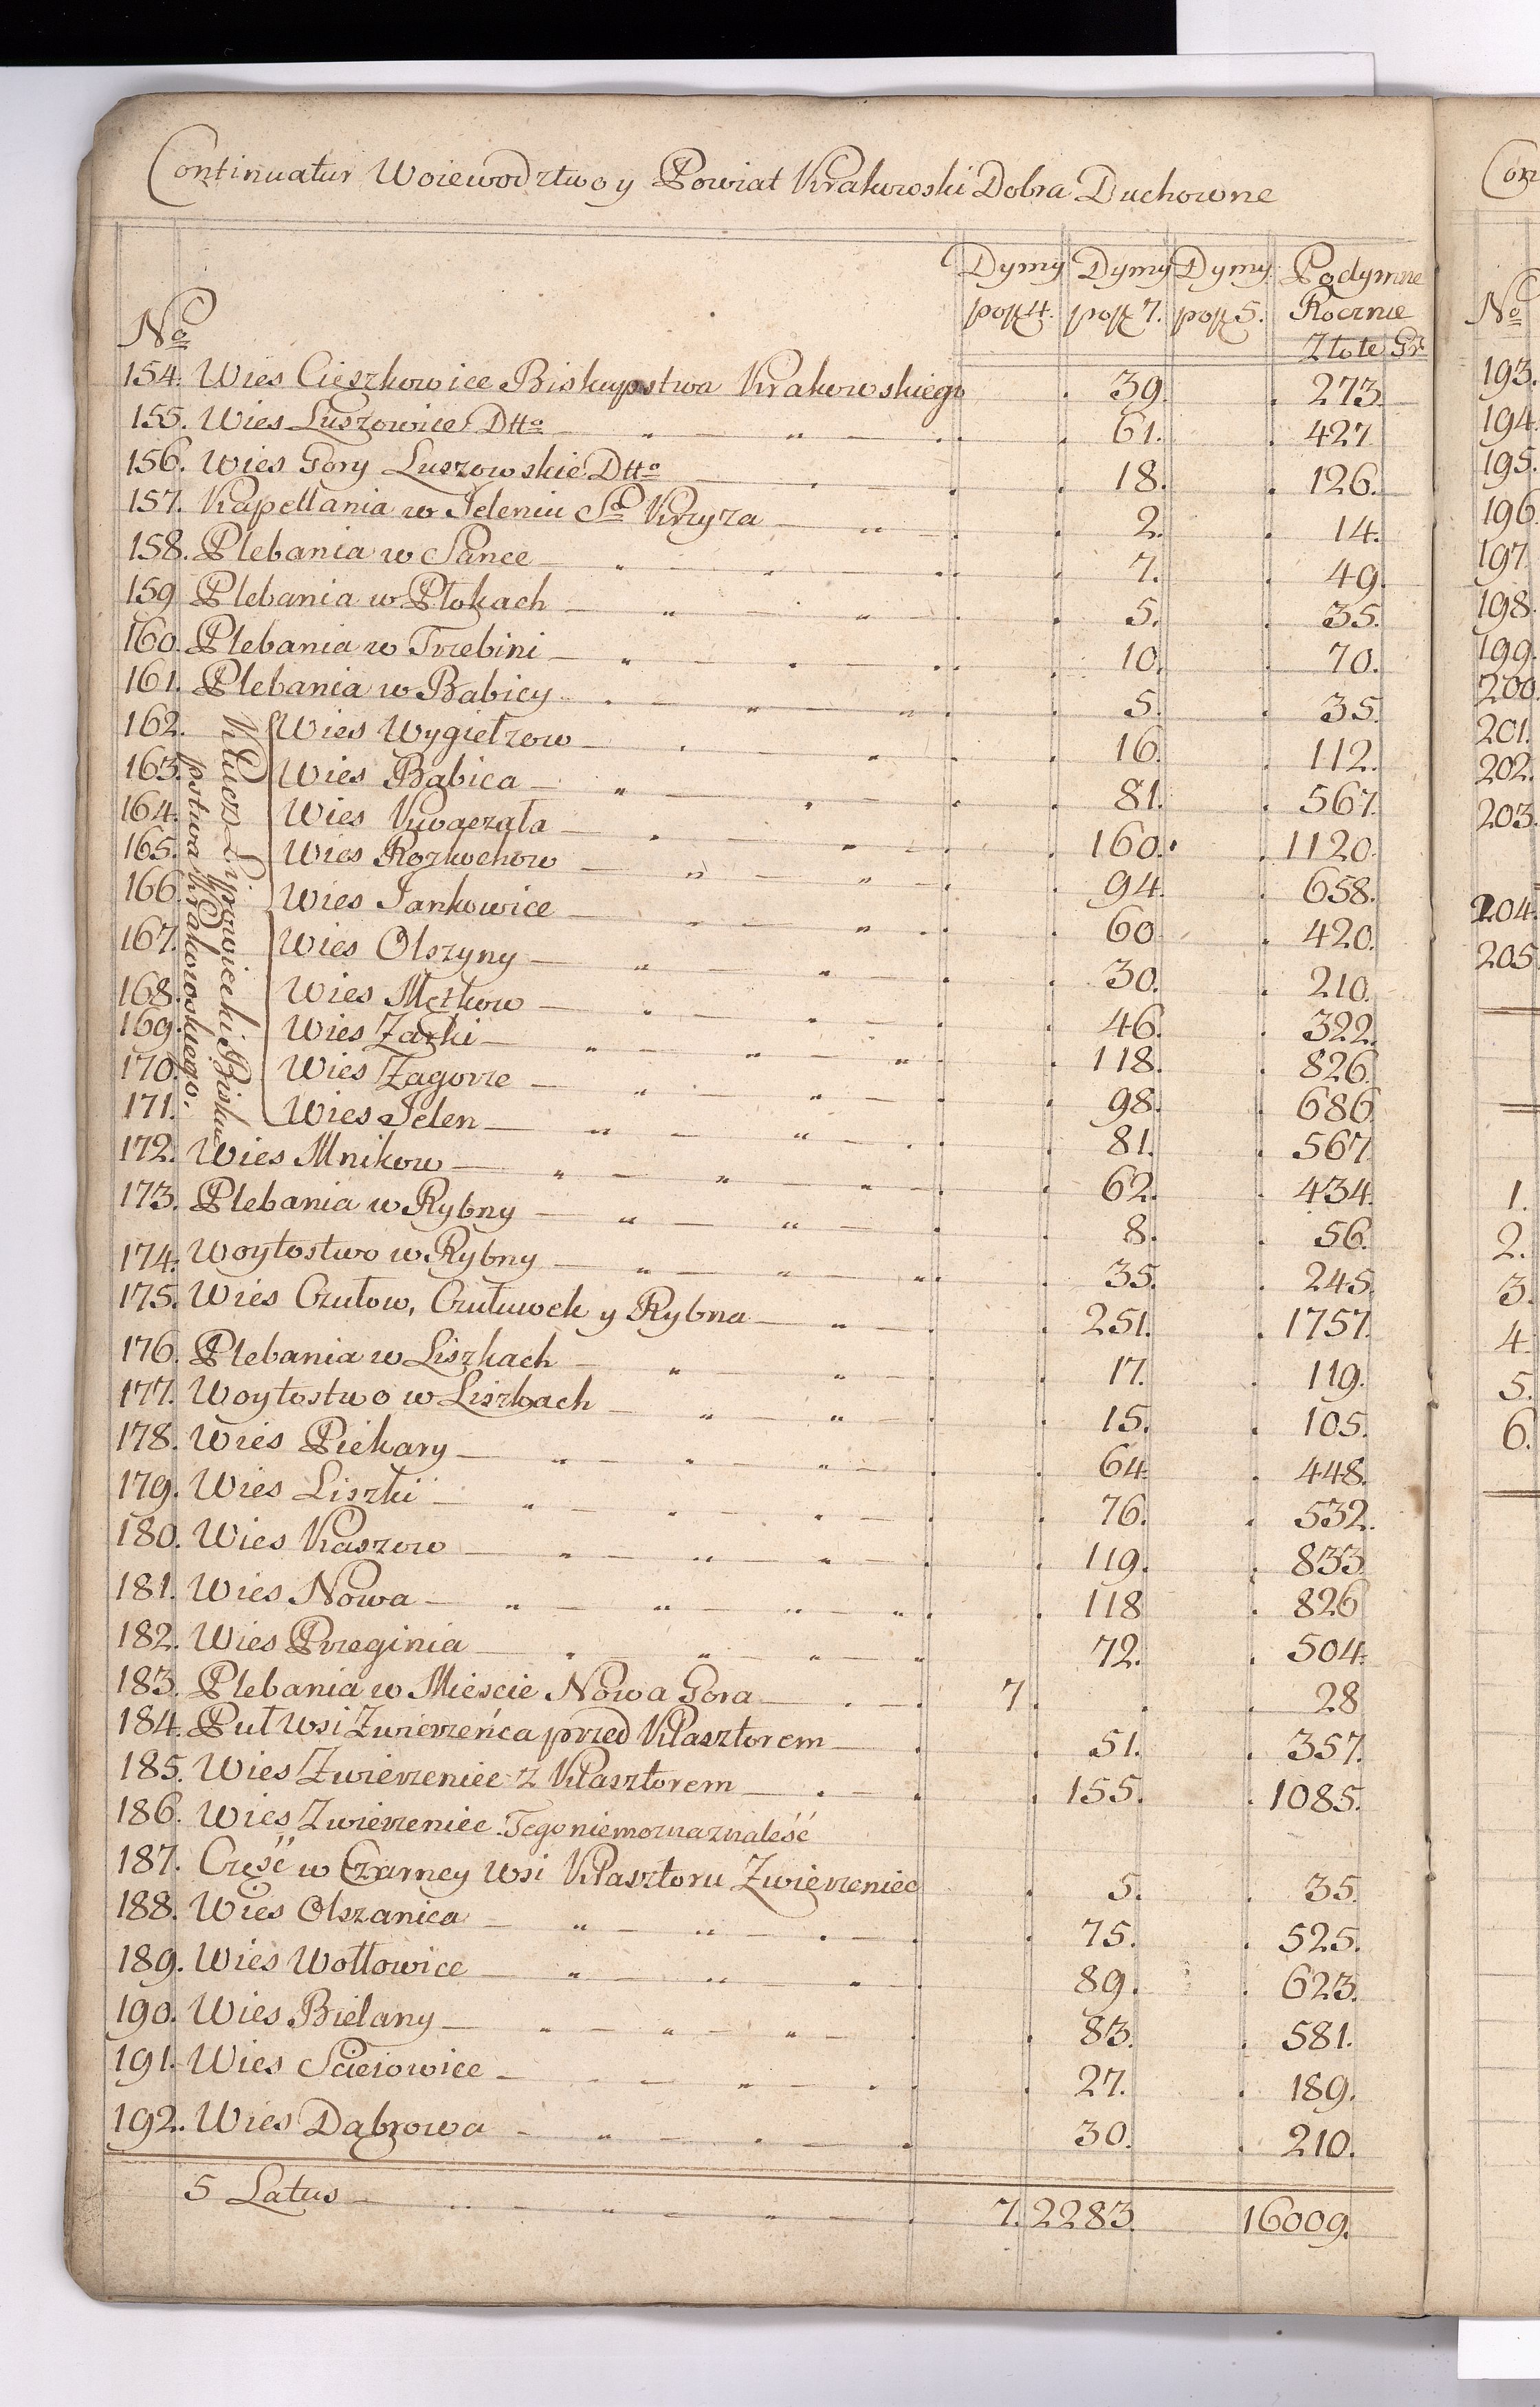 Continuatur Woiewodztwo y Powiat Krakowski Dobra Duchowne
No Dymy po fl 4. Dymy po fl 7. Dymy po fl 5. Podymne Rocznie Złote Gr
154. Wies Cięszkowice Biskupstwa Krakowskiego 39. 273.
155. Wies Luszowice Dtto 61. 427
156. Wies Gory Luszowskie Dtto 18. 126.
157. Kapellania w Jeleniu So Krzyza 2. 14.
158. Plebania w Sance 7. 49.
159 Plebania w Płokach 5. 35.
160. Plebania w Trzebini 10. 70.
161. Plebania w Babicy 5. 35.
Klucz Lipowiecki Biskupstwa Krakowskiego.
162. Wies Wygiełzow 16. 112.
163. Wies Babica 81. 567.
164. Wies Kwaczała 160. 1120.
165. Wies Rozkochow 94. 658.
166. Wies Jankowice 60. 420.
167. Wies Olszyny 30. 210.
168. Wies Mętkow 46. 322.
169. Wies Zarki 118. 826.
170. Wies Zagorze 98. 686
171. Wies Jelen 81. 567
172. Wies Mnikow 62. 434.
173. Plebania w Rybny 8. 56.
174. Woytostwo w Rybny 35. 245.
175. Wies Czułow, Czułuwek y Rybna 251. 1757.
176. Plebania w Liszkach 17. 119.
177. Woytostwo w Liszkach 15. 105.
178. Wies Piekary 64. 448.
179. Wies Liszki 76. 532.
180. Wies Kaszow 119. 833
181. Wies Nowa 118 826
182. Wies Przeginia 72. 504.
183. Plebania w Miescie Nowa Gora 7 28
184. Puł Wsi Zwierzeńca przed Klasztorem 51. 357.
185. Wies Zwierzeniec z Klasztorem 155. 1085.
186. Wies Zwierzeniec Tego niemozna znaleść
187. Część w Czarney Wsi Klasztoru Zwierzeniec 5. 35.
188. Wies Olszanica 75. 525.
189. Wies Wołłowice 89. 623.
190. Wies Bielany 83. 581.
191. Wies Scieiowice 27. 189.
192. Wies Dąbrowa 30. 210.
5 Latus 7. 2283. 16009.
Con
No
193.
194.
195.
196
197.
198.
199.
200.
201.
202.
203.
204.
205
1.
2.
3.
4.
5.
6.